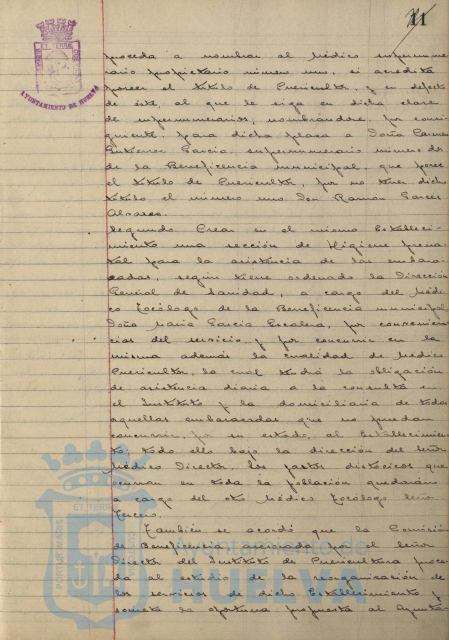 11
proceda a nombrar al Médico supernume-
rario propietario número uno, si acredita
poseer el título de Puericultor, y en defecto
de éste, al que le siga en dicha clase
de supernumerarios, nombrándose, por consi-
guiente, para dicha plaza a Doña Carmen
Gutierrez Garcia, supernumerario número dos
de la Beneficencia municipal, que posee
el título de Puericultor, por no tener dicho
título el número uno Don Ramon Garcés
Alvarez.
Segundo. Crear en el mismo Estableci-
miento una sección de Higiene prena-
tal para la asistencia de las embara-
zadas, según tiene ordenado la Dirección
General de Sanidad, a cargo del Médi-
co Tocólogo de la Beneficencia municipal
Doña Maria Garcia Escalera, por convenien-
cias del servicio y por concurrir en la
misma además la cualidad de Médico
Puericultor, la cual tendrá la obligación
de asistencia diaria a la consulta en
el Instituto y la domiciliaria de todas
aquellas embarazadas que no puedan
concurrir, por su estado, al Establecimien-
to; todo ello bajo la dirección del señor
Médico Director. Los partos distócicos que
ocurran en toda la población quedarán
a cargo del otro Médico Tocólogo Señor
Tercero.
También se acordó que la Comisión
de Beneficencia asesorada por el Señor
Director del Instituto de Puericultura proce-
da al estudio de la reorganización de
los servicios de dicho Establecimiento y
someta la oportuna propuesta al Ayunta-
AYUNTAMIENTO DE HUELVA
Ayuntamiento de
HUELVA